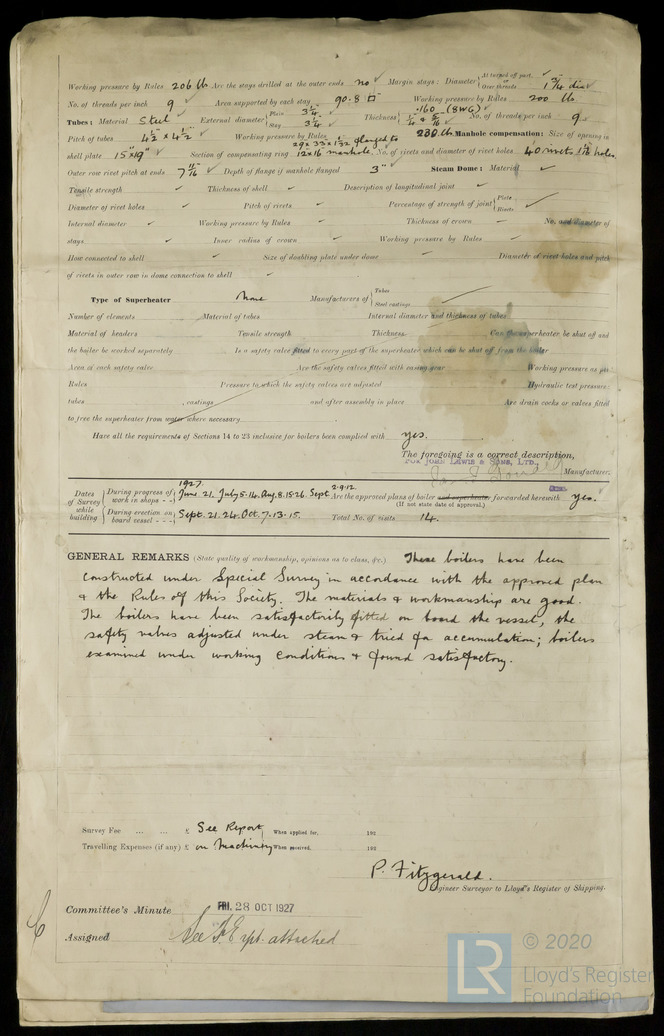 Working pressure by Rules 206 lb Are the stays drilled at the outer ends no Margin stays: Diameter { At turned off part, Over threads 1 3/4 dia
No. of threads per inch 9 Area supported by each stay 90.8 □" Working pressure by Rules 200 lb
Tubes: Material Steel External diameter { Plain 3 1/4" Stay 3 1/4" Thickness { .160 (8WG) 1/4 & 5/16 No. of threads per inch 9
Pitch of tubes 4 1/2 x 4 1/2 Working pressure by Rules 230 lb Manhole compensation: Size of opening in
shell plate 15"x19" Section of compensating ring 29 x 33 x 1 1/32 flanged to 12x16 manhole. No. of rivets and diameter of rivet holes 40 rivets 1 1/16 holes
Outer row rivet pitch at ends 7 11/16 Depth of flange if manhole flanged 3" Steam Dome: Material
Tensile strength Thickness of shell Description of longitudinal joint
Diameter of rivet holes Pitch of rivets Percentage of strength of joint { Plate Rivets
Internal diameter Working pressure by Rules Thickness of crown No. and diameter of
stays Inner radius of crown Working pressure by Rules
How connected to shell Size of doubling plate under dome Diameter of rivet holes and pitch
of rivets in outer row in dome connection to shell
Type of Superheater None Manufacturers of { Tubes Steel castings
Number of elements Material of tubes Internal diameter and thickness of tubes
Material of headers Tensile strength Thickness Can the superheater be shut off and
the boiler be worked separately Is a safety valve fitted to every part of the superheater which can be shut off from the boiler
Area of each safety valve Are the safety valves fitted with easing gear Working pressure as per
Rules Pressure to which the safety valves are adjusted Hydraulic test pressure:
tubes , castings and after assembly in place Are drain cocks or valves fitted
to free the superheater from water where necessary
Have all the requirements of Sections 14 to 23 inclusive for boilers been complied with yes.
The foregoing is a correct description,
FOR JOHN LEWIS & SONS, LTD.
Manufacturer.
Dates of Survey while building { During progress of work in shops - - } 1927. June 21. July 5-14. Aug. 8.15.26. Sept 2.9.12 Are the approved plans of boiler and superheater forwarded herewith yes.
(If not state date of approval.)
{ During erection on board vessel - - - } Sept. 21.24. Oct. 7.13.15. Total No. of visits 14.
GENERAL REMARKS (State quality of workmanship, opinions as to class, &c.) These boilers have been
constructed under Special Survey in accordance with the approved plan
& the Rules of this Society. The materials & workmanship are good.
The boilers have been satisfactorily fitted on board the vessel, the
safety valves adjusted under steam & tried for accumulation; boilers
examined under working conditions & found satisfactory.
Survey Fee ... ... £ See Report When applied for, 192
Travelling Expenses (if any) £ on Machinery When received, 192
P. Fitzgerald.
Engineer Surveyor to Lloyd's Register of Shipping.
Committee's Minute FRI. 28 OCT 1927
Assigned See F.E. rpt. attached
LR © 2020
Lloyd's Register
Foundation